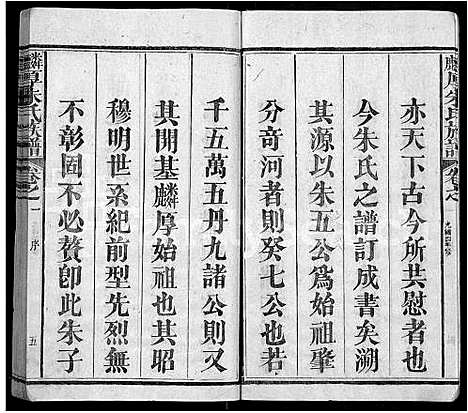 亦天下古今所共慰者也
今朱氏之譜訂成書矣溯
其源以朱五公為始祖肇
分奇河者則癸七公也若
千五萬五丹九諸公則又
其開基麟厚始祖也其昭
穆明世系紀前型先烈無
不彰固不必贅卽此朱子
麟厚朱氏族譜
卷之一
序
五